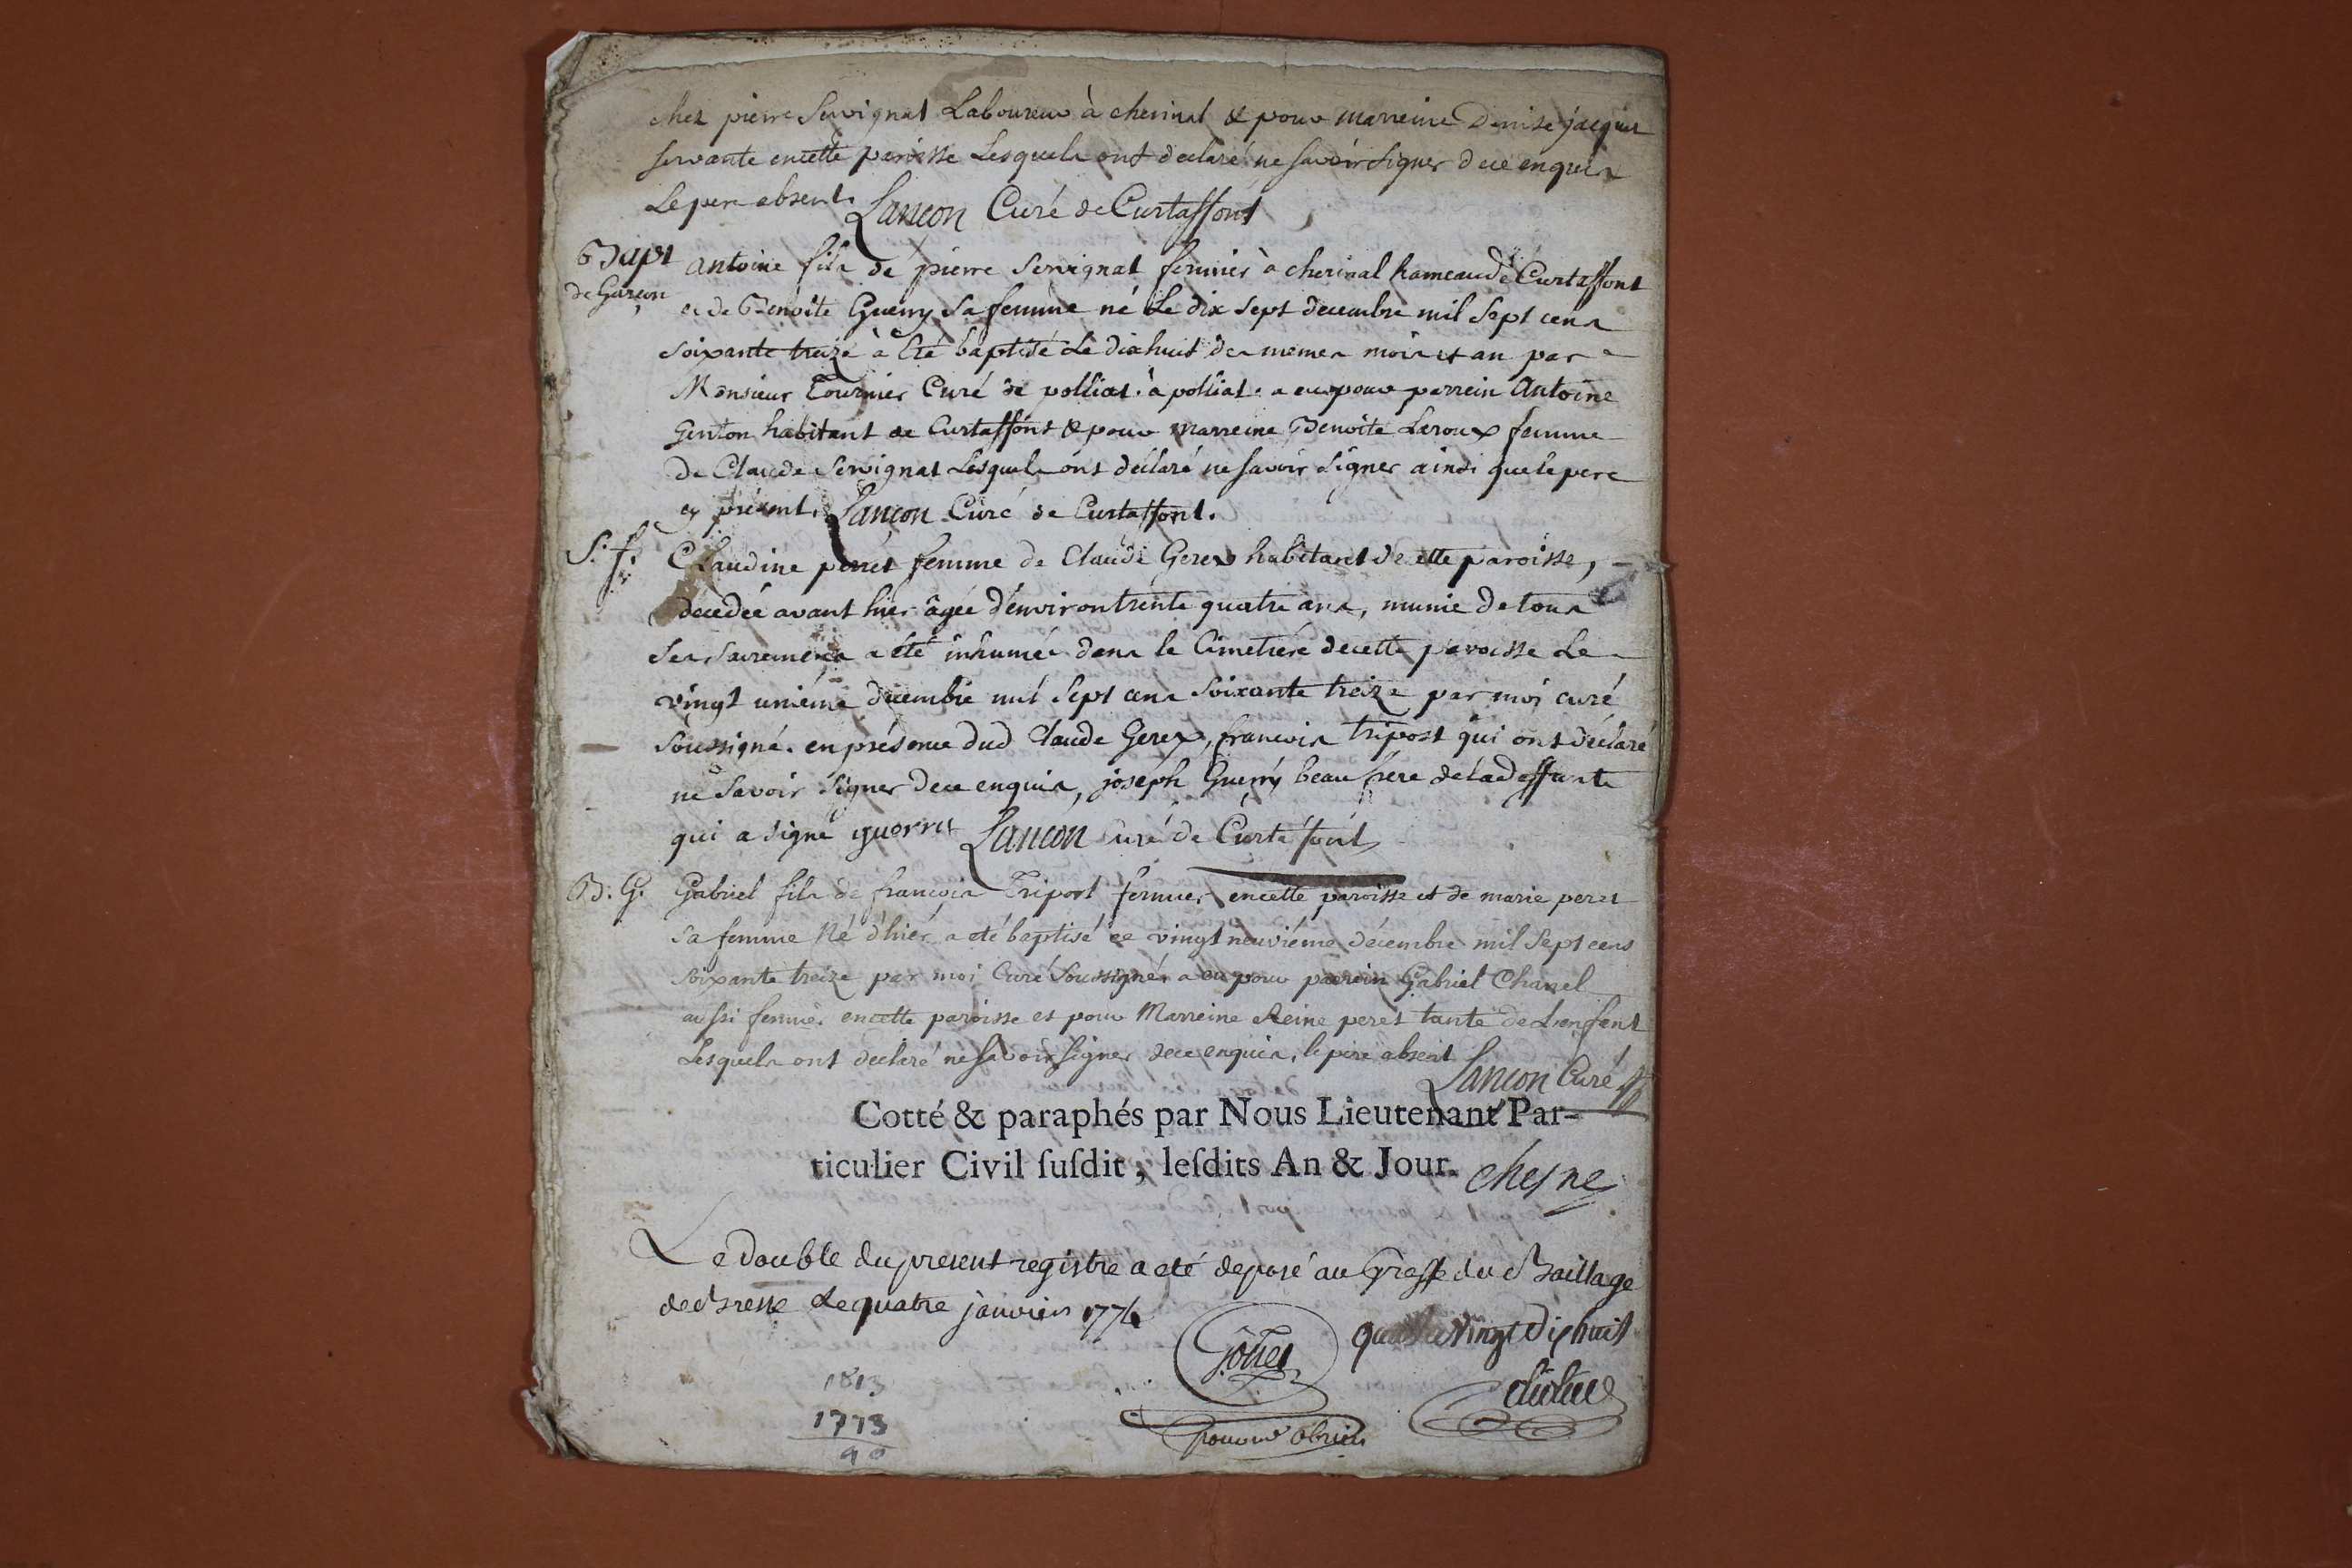 chez pierre Servignat Laboureur à cherinal & pour marreine Denise jacquet
servante encette paroisse Lesquels ont declaré ne savoir signer de ce enquis
Le pere absent. Lançon Curé de Curtaffont
Bapt
de Garçon
antoine fils de pierre Servignat fermier à cherinal hameau de Curtaffont
et de Benoite Guerry sa femme né Le dix sept decembre mil sept cens
soixante treize à été baptisé Le dix huit des memes mois et an par
Monsieur Tournier Curé de polliat à polliat. a eu pour parrein Antoine
Genton habitant de Curtaffont & pour marreine Benoite Laroux femme
de Claude Servignat Lesquels ont déclaré ne savoir signer ainsi que le pere
cy présent. Lançon Curé de Curtaffont.
S. f.
Claudine perret femme de Claude Gerex habitant de cette paroisse,
décedée avant hier âgée d'environ trente quatre ans, munie de tous
ses sacremens a été inhumée dans le Cimetiére decette paroisse Le
vingt uniéme decembre mil sept cens soixante treize par moi curé
soussigné. en présence dud Claude Gerex, francois tripost qui ont déclaré
ne savoir signer de ce enquis, joseph Guerry beau frere de la deffunte
qui a signé guerry Lançon curé de Curtafont
B. G.
Gabriel fils de francois Tripost fermier encette paroisse et de marie peret
sa femme Né d'hiér a eté baptisé ce vingt neuviéme décembre mil sept cens
soixante treize par moi Curé soussigné. a eu pour parrein Gabriel Chanel
aussi fermier encette paroisse et pour Marreine Reine peret tante de L'enfant
Lesquels ont declaré ne savoir signer de ce enquis, le pere absent
Lançon Curé
Cotté & paraphés par Nous Lieutenant Par-
ticulier Civil ſuſdit, leſdits An & Jour. chesne
Le double du present registre a eté deposé au Greffe du Baillage
de Bresse Le quatre janvier 1774
quatre vingt dix huit
1813
1773
40